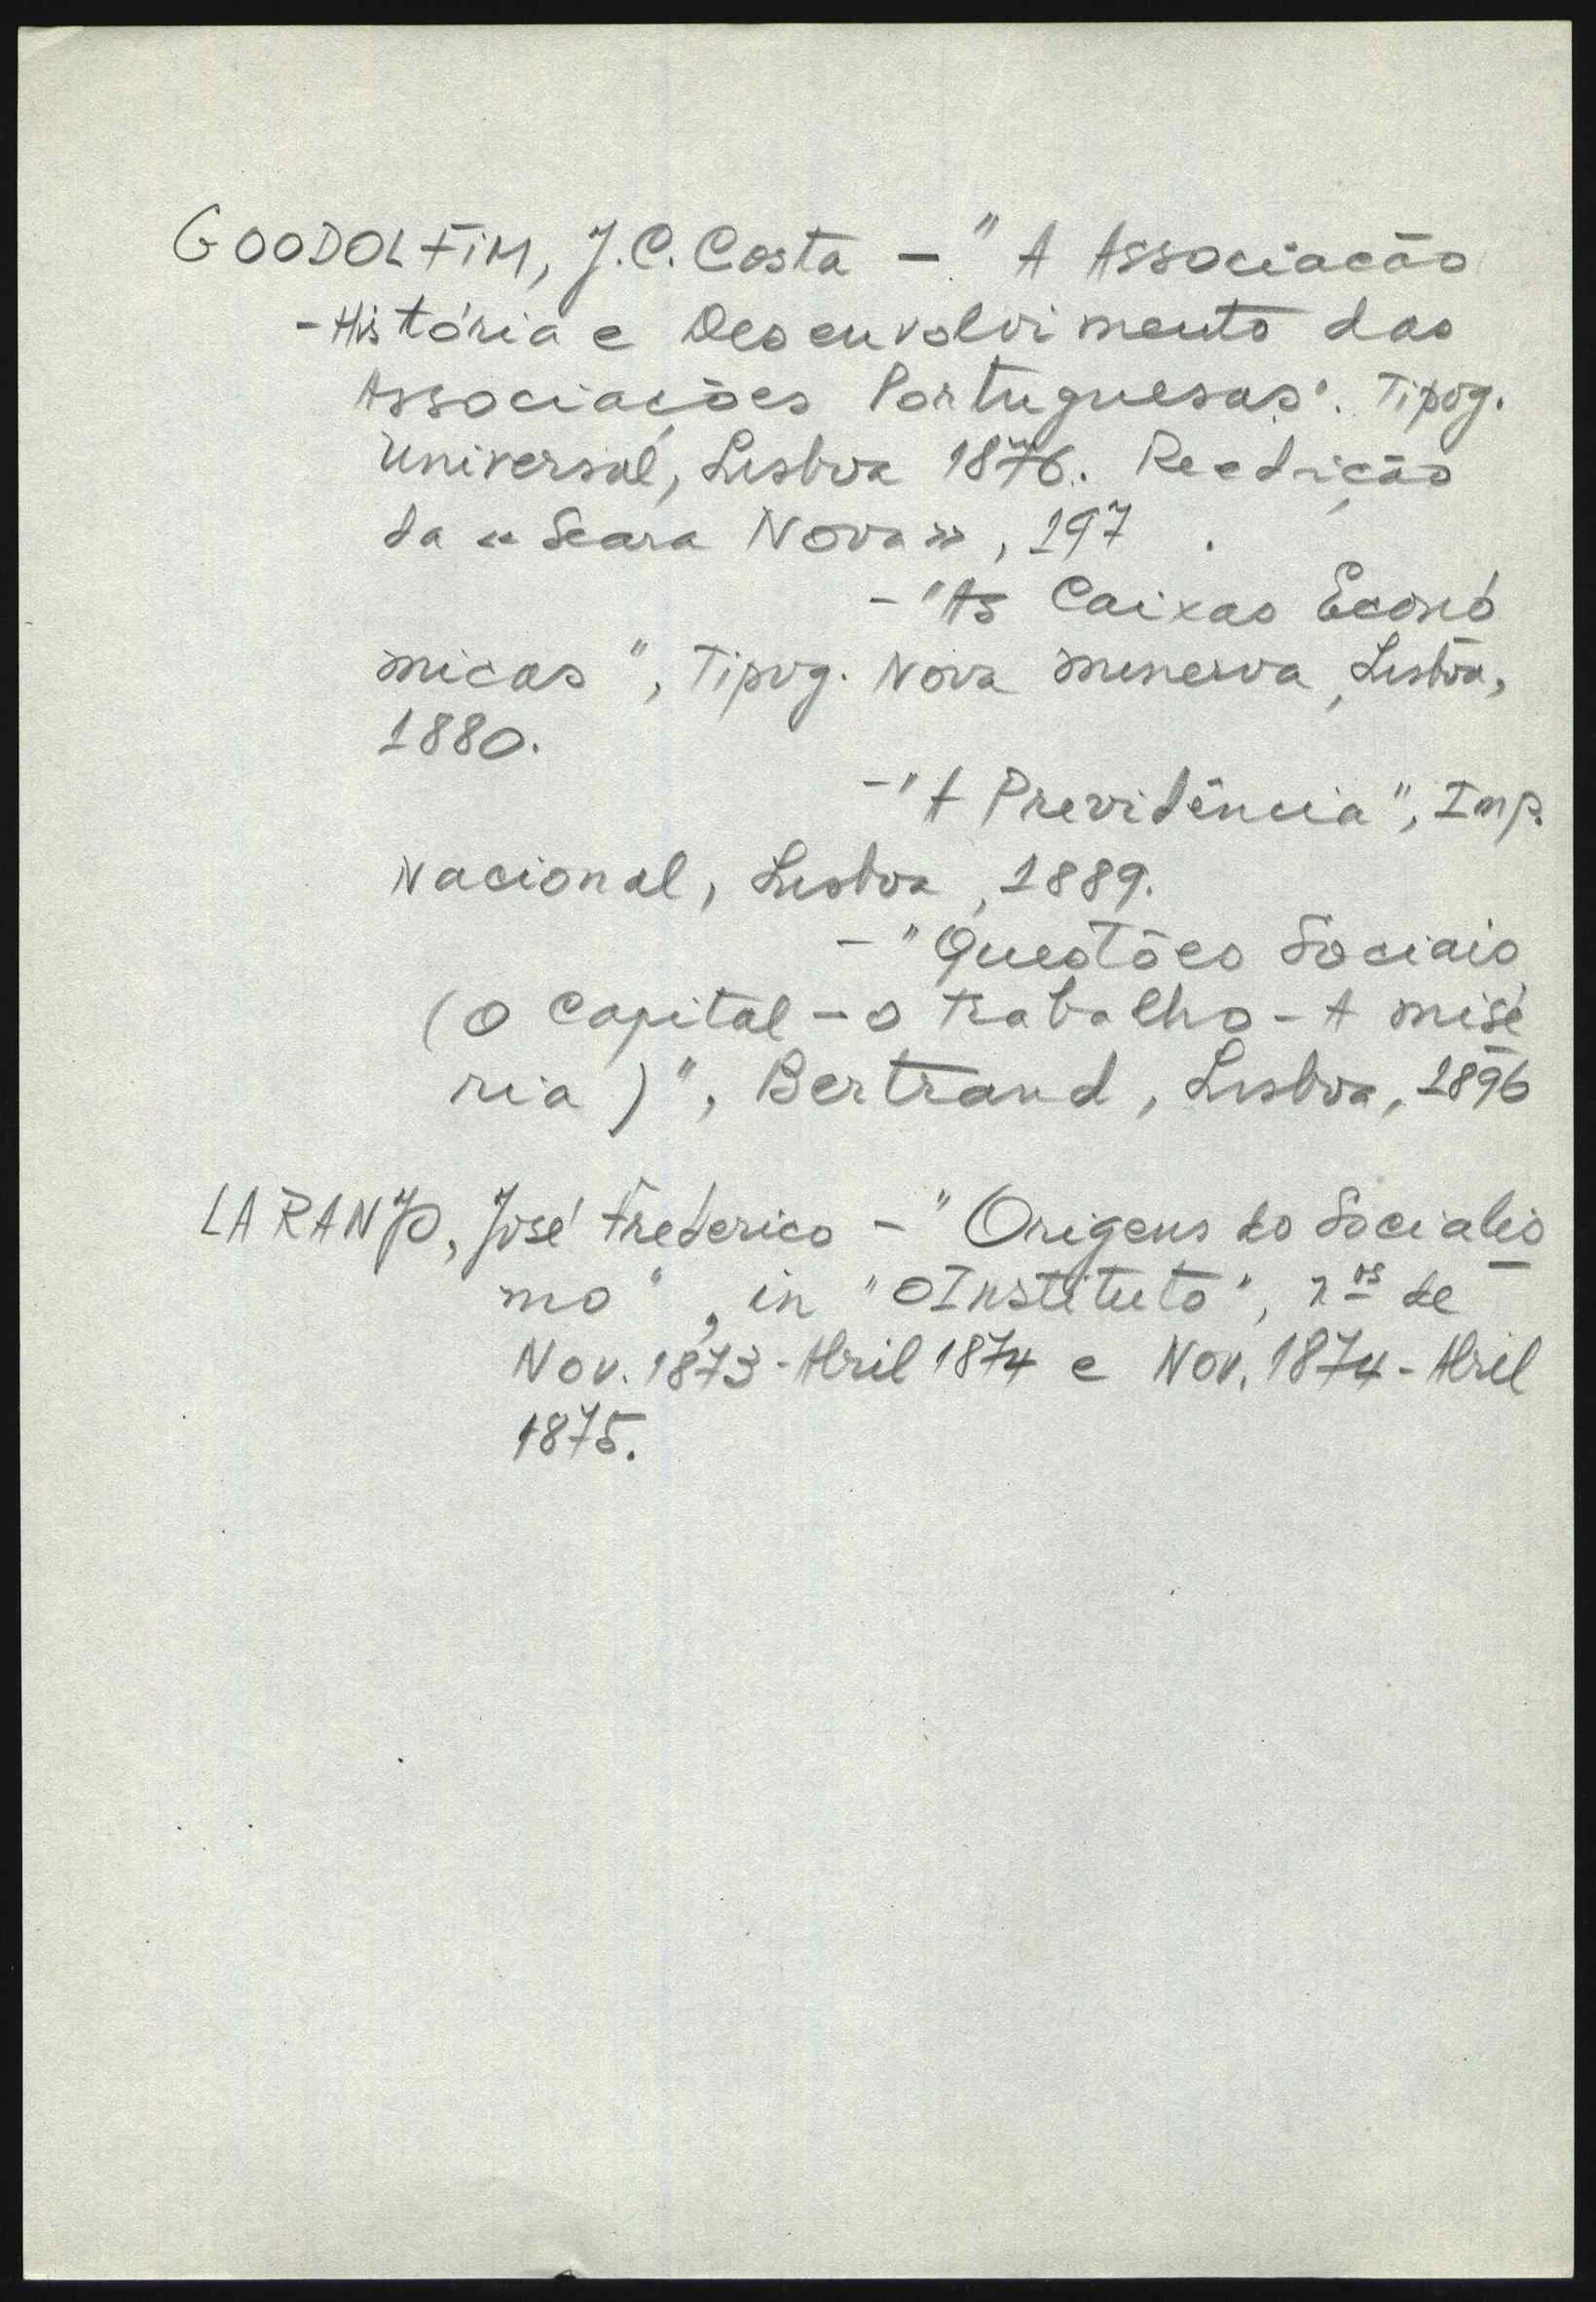 GOODOLFIM, J.C. Costa - "A Associacão
- História e Desenvolvimento das
Associações Portuguesas". Tipog.
Universal, Lisboa 1876. Reedição
da «Seara Nova», 197 .
- "As Caixas Econó
micas", Tipog. Nova Minerva, Lisboa,
1880.
- "A Previdência", Imp.
Nacional, Lisboa, 1889.
- "Questões Sociais
(O Capital - o Trabalho - A Misé
ria)", Bertrand, Lisboa, 1896
LARANJO, José Frederico - "Origens do Socialis
mo", in "O Instituto", nos de
Nov. 1873 - Abril 1874 e Nov. 1874 - Abril
1875.